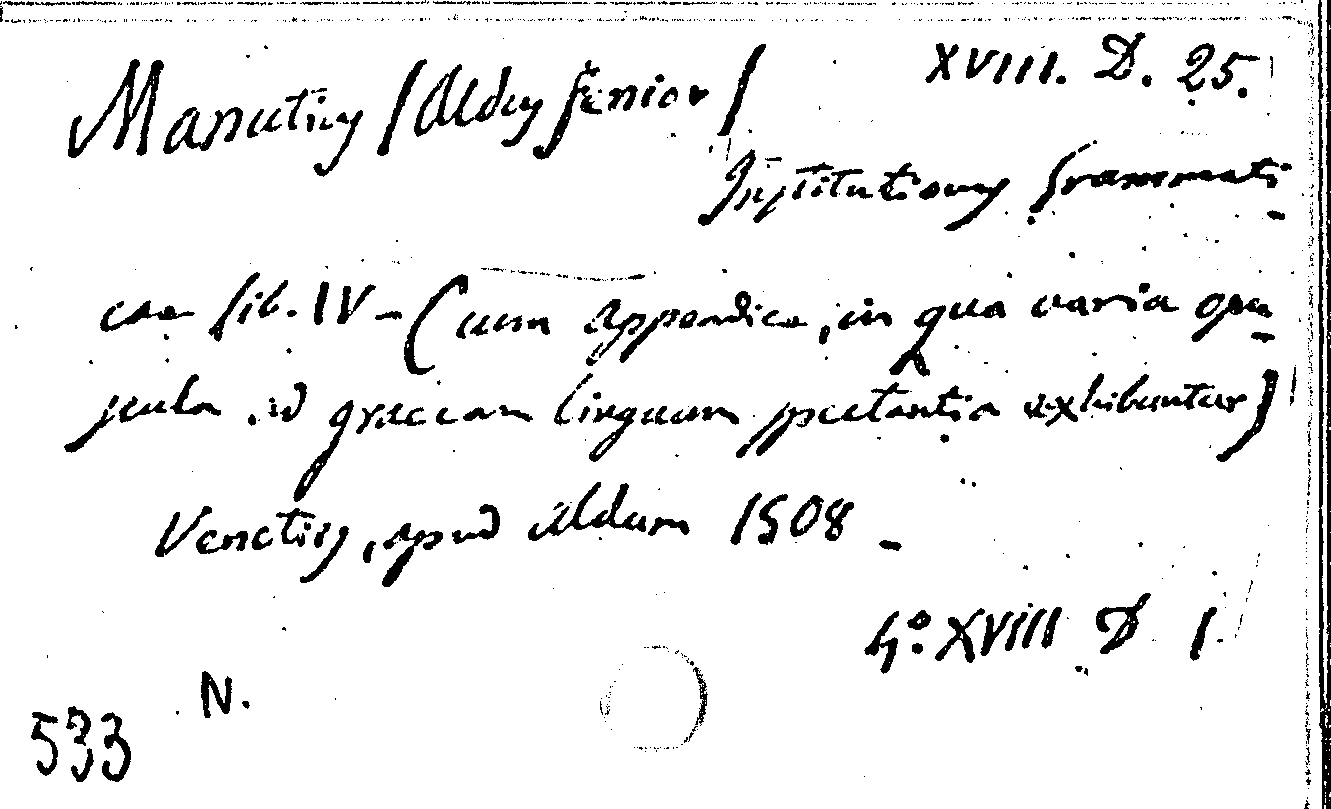 XVIII. D. 25.
Manutius (Aldus senior)
Institutionum Grammati-
cae lib. IV - (cum appendice, in qua varia opu-
scula ad graecam linguam spectantia exhibuntur)
Venetiis, apud Aldum 1508 -
4º. XVIII D 1
N.
533